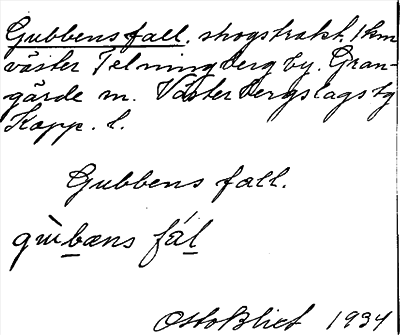 Gubbens fall. skogstrakt, 1 km
väster Telningberg by. Gran-
gärde sn. Västerbergslags tg
Kopp. l.
Gubbens fall.
gùbæns fál
Otto Blixt 1934